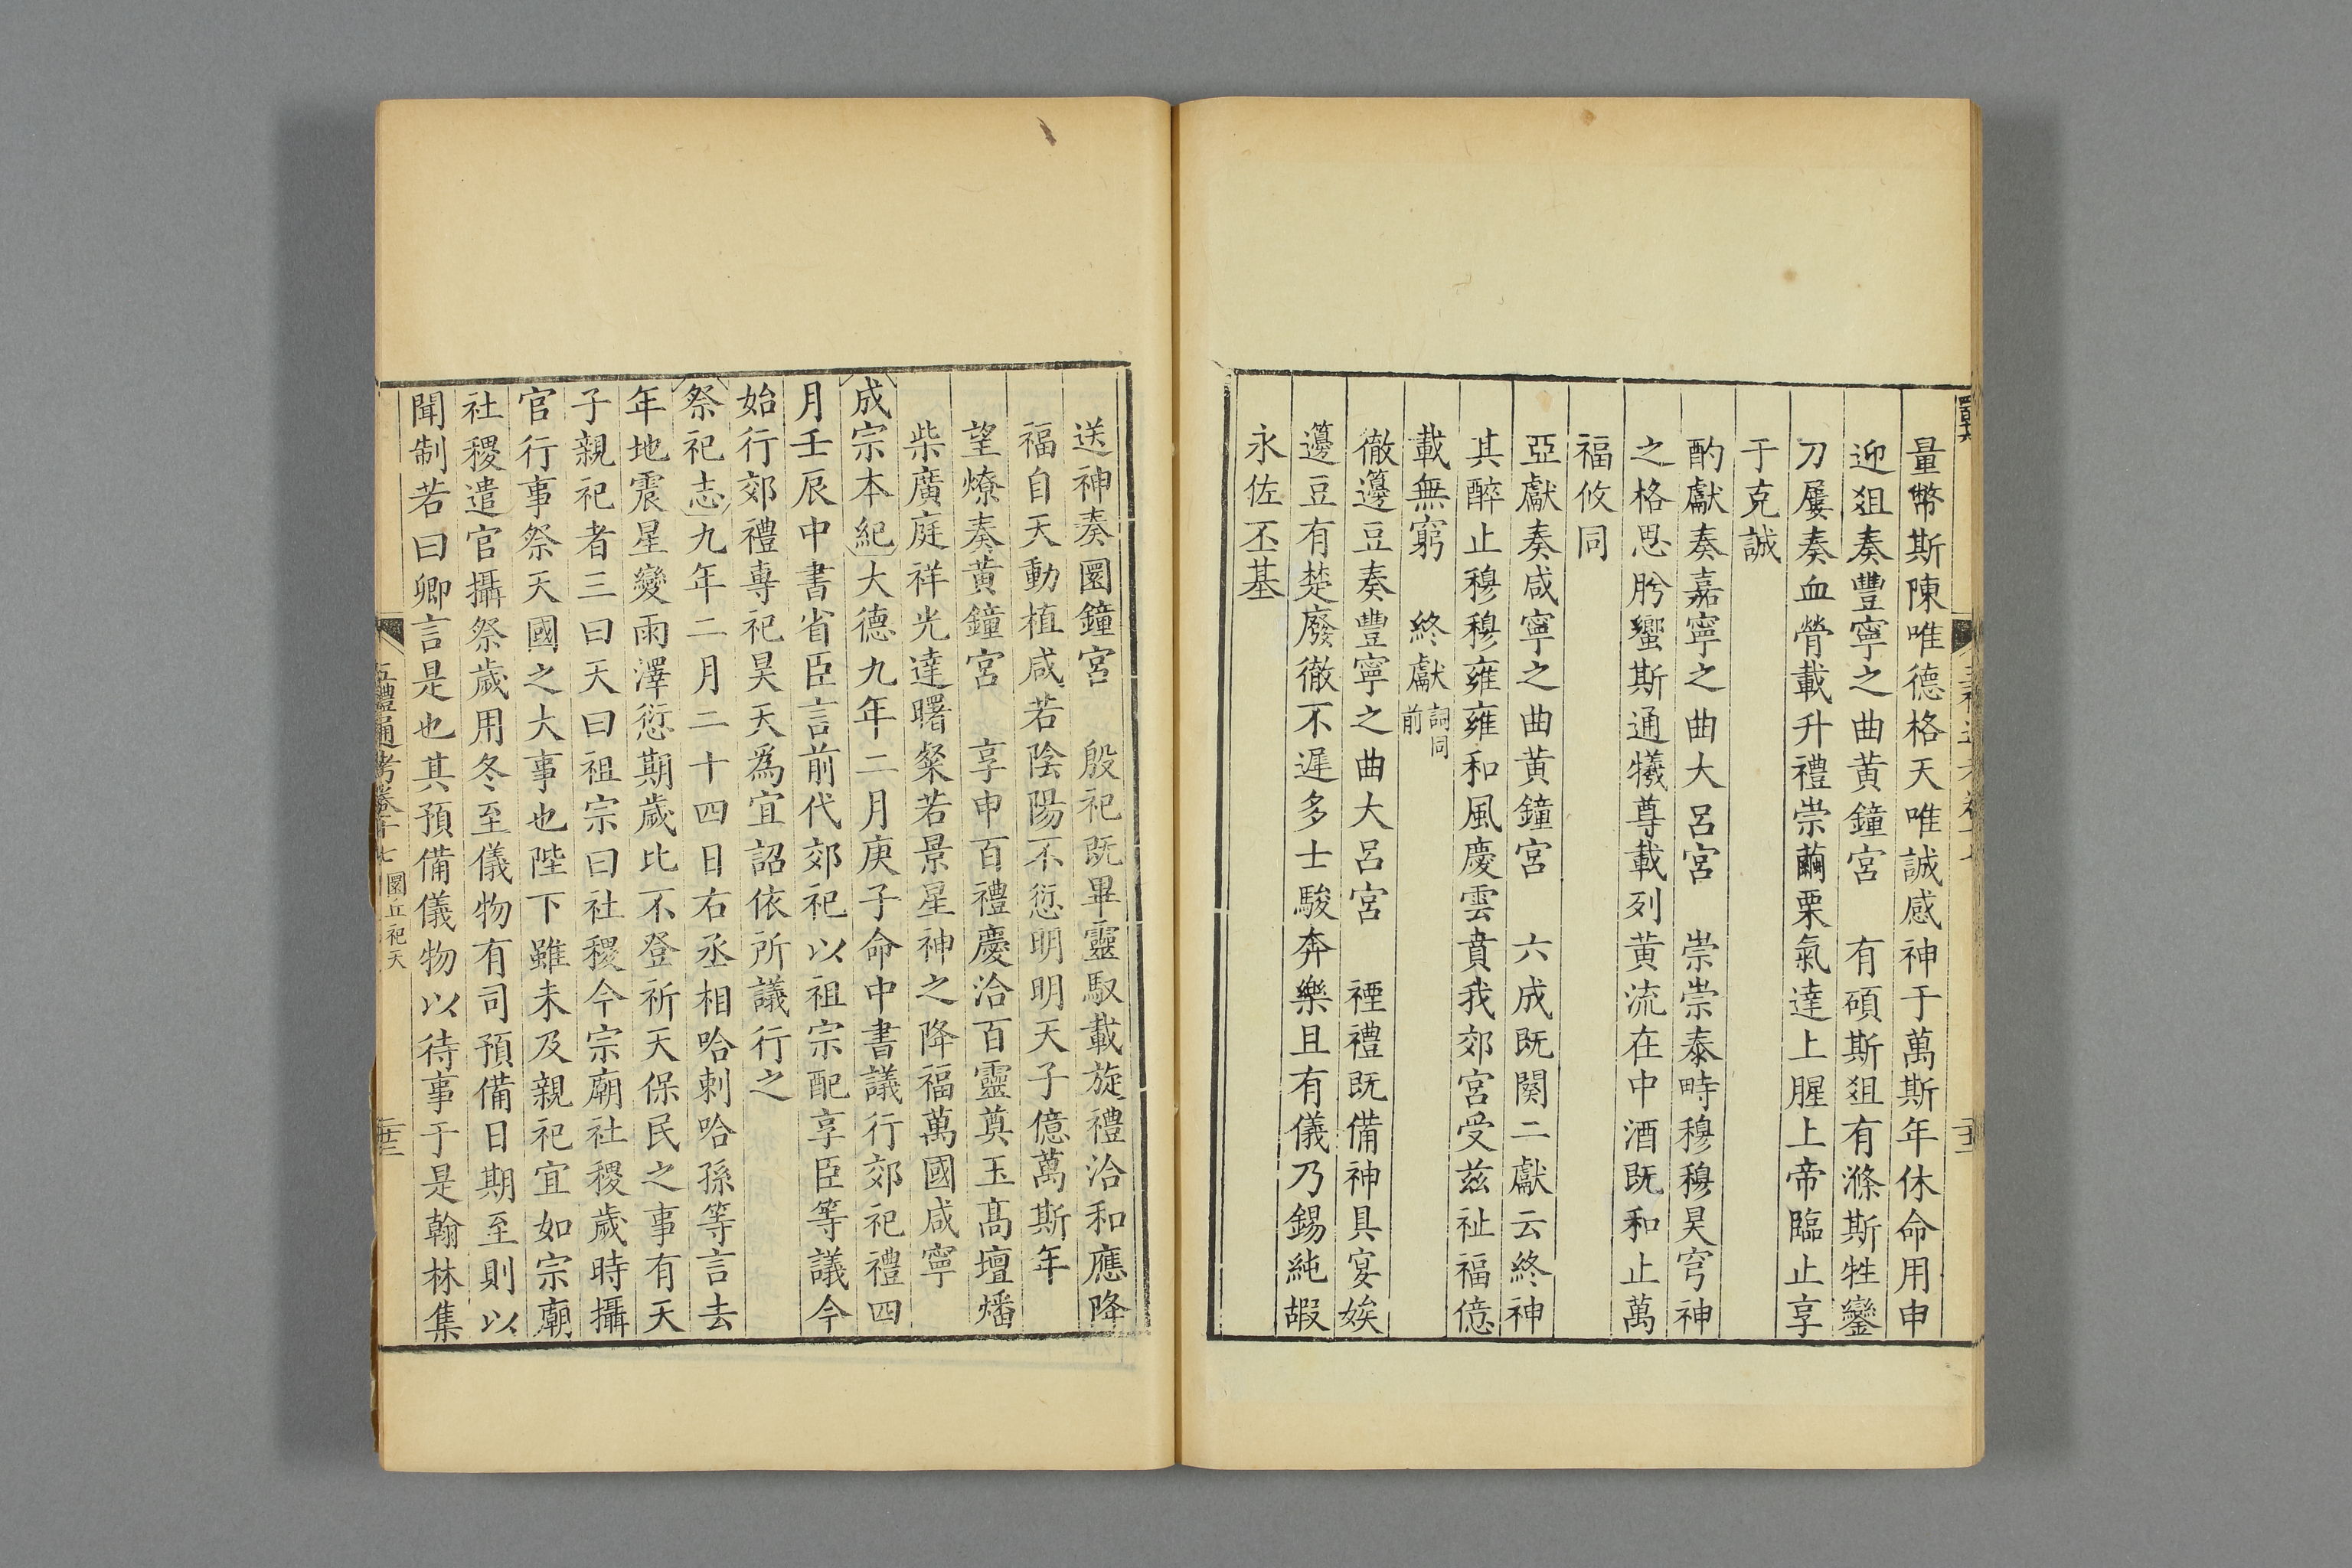 量幣斯陳唯德格天唯誠感神于萬斯年休命用申
迎俎奏豐寧之曲黄鐘宮　有碩斯俎有滌斯牲鑾
刀屢奏血膋載升禮崇繭栗氣達上腥上帝臨止享
于克誠
酌獻奏嘉寧之曲大呂宮　崇崇泰畤穆穆昊穹神
之格思肸蠁斯通犧尊載列黄流在中酒既和止萬
福攸同
亞獻奏咸寧之曲黄鐘宮　六成既闋二獻云終神
其醉止穆穆雍雍和風慶雲賁我郊宮受兹祉福億
載無窮　終獻詞同前
徹籩豆奏豐寧之曲大呂宮　禋禮既備神具宴娭
籩豆有楚廢徹不遲多士駿奔樂且有儀乃錫純嘏
永佐丕基
送神奏圜鐘宮　殷祀既畢靈馭載旋禮洽和應降
福自天動植咸若陰陽不愆明明天子億萬斯年
望燎奏黄鐘宮　享申百禮慶洽百靈奠玉髙壇燔
柴廣庭祥光達曙粲若景星神之降福萬國咸寧
成宗本紀大德九年二月庚子命中書議行郊祀禮四
月壬辰中書省臣言前代郊祀以祖宗配享臣等議今
始行郊禮專祀昊天爲宜詔依所議行之
祭祀志九年二月二十四日右丞相哈剌哈孫等言去
年地震星變雨澤愆期歲比不登祈天保民之事有天
子親祀者三曰天曰祖宗曰社稷今宗廟社稷歲時攝
官行事祭天國之大事也陛下雖未及親祀宜如宗廟
社稷遣官攝祭歲用冬至儀物有司預備日期至則以
聞制若曰卿言是也其預備儀物以待事于是翰林集
五禮通考卷十七　圜丘祀天